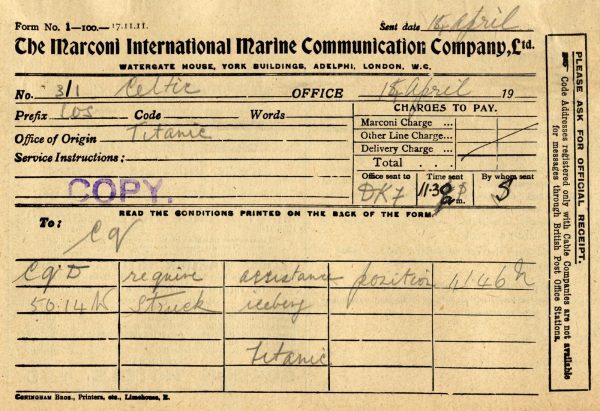 Form No. 1—100—17.11.11.
Sent date 15 April
The Marconi International Marine Communication Company, Ltd.
WATERGATE HOUSE, YORK BUILDINGS, ADELPHI, LONDON, W.C.
No. 3/1 Celtic OFFICE 15 April 19
Prefix Code Words
CHARGES TO PAY.
Marconi Charge ...
Office of Origin Titanic
Other Line Charge...
Delivery Charge ...
Service Instructions:
Total . .
COPY.
Office sent to Time sent By whom sent
11.30 m.
READ THE CONDITIONS PRINTED ON THE BACK OF THE FORM.
To:
Cq
CqD require assistance position
50.14N struck iceberg
Titanic
CORINGHAM BROS., Printers, etc., Limehouse, E.
PLEASE ASK FOR OFFICIAL RECEIPT.
Code Addresses registered only with Cable Companies are not available
for messages through British Post Office Stations.